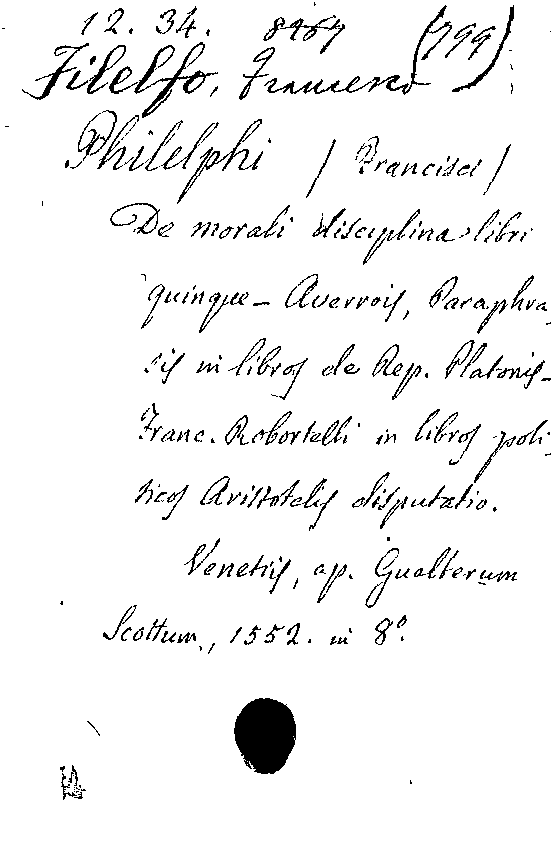 12. 34. 8967 (799)
Filelfo, Francesco
Philelphi / Francisci /
De morali disciplina libri
quinque - Averrois, Paraphra-
sis in libros de Rep. Platonis -
Franc. Robortelli in libros poli-
ticos Aristotelis disputatio.
Venetiis, ap. Gualterum
Scottum, 1552. in 8º.